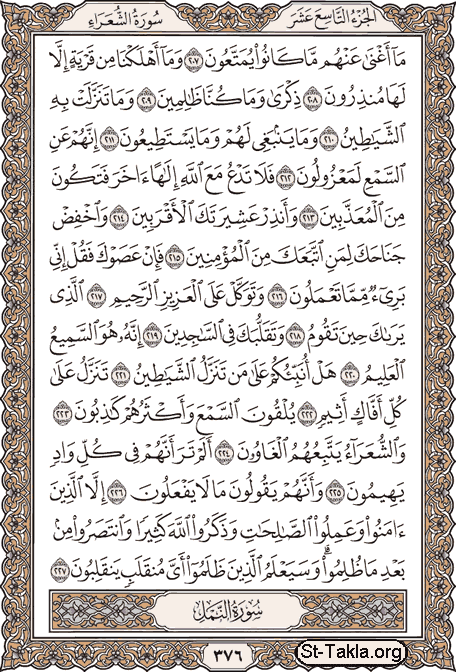 الجزء التاسع عشر
سورة الشعراء
مَآ أَغْنَىٰ عَنْهُم مَّا كَانُوا۟ يُمَتَّعُونَ ٢٠٧ وَمَآ أَهْلَكْنَا مِن قَرْيَةٍ إِلَّا
لَهَا مُنذِرُونَ ٢٠٨ ذِكْرَىٰ وَمَا كُنَّا ظَٰلِمِينَ ٢٠٩ وَمَا تَنَزَّلَتْ بِهِ
ٱلشَّيَٰطِينُ ٢١٠ وَمَا يَنۢبَغِى لَهُمْ وَمَا يَسْتَطِيعُونَ ٢١١ إِنَّهُمْ عَنِ
ٱلسَّمْعِ لَمَعْزُولُونَ ٢١٢ فَلَا تَدْعُ مَعَ ٱللَّهِ إِلَٰهًا ءَاخَرَ فَتَكُونَ
مِنَ ٱلْمُعَذَّبِينَ ٢١٣ وَأَنذِرْ عَشِيرَتَكَ ٱلْأَقْرَبِينَ ٢١٤ وَٱخْفِضْ
جَنَاحَكَ لِمَنِ ٱتَّبَعَكَ مِنَ ٱلْمُؤْمِنِينَ ٢١٥ فَإِنْ عَصَوْكَ فَقُلْ إِنِّى
بَرِىٓءٌ مِّمَّا تَعْمَلُونَ ٢١٦ وَتَوَكَّلْ عَلَى ٱلْعَزِيزِ ٱلرَّحِيمِ ٢١٧ ٱلَّذِى
يَرَىٰكَ حِينَ تَقُومُ ٢١٨ وَتَقَلُّبَكَ فِى ٱلسَّٰجِدِينَ ٢١٩ إِنَّهُۥ هُوَ ٱلسَّمِيعُ
ٱلْعَلِيمُ ٢٢٠ هَلْ أُنَبِّئُكُمْ عَلَىٰ مَن تَنَزَّلُ ٱلشَّيَٰطِينُ ٢٢١ تَنَزَّلُ عَلَىٰ
كُلِّ أَفَّاكٍ أَثِيمٍ ٢٢٢ يُلْقُونَ ٱلسَّمْعَ وَأَكْثَرُهُمْ كَٰذِبُونَ ٢٢٣
وَٱلشُّعَرَآءُ يَتَّبِعُهُمُ ٱلْغَاوُۥنَ ٢٢٤ أَلَمْ تَرَ أَنَّهُمْ فِى كُلِّ وَادٍ
يَهِيمُونَ ٢٢٥ وَأَنَّهُمْ يَقُولُونَ مَا لَا يَفْعَلُونَ ٢٢٦ إِلَّا ٱلَّذِينَ
ءَامَنُوا۟ وَعَمِلُوا۟ ٱلصَّٰلِحَٰتِ وَذَكَرُوا۟ ٱللَّهَ كَثِيرًا وَٱنتَصَرُوا۟ مِنۢ
بَعْدِ مَا ظُلِمُوا۟ ۗ وَسَيَعْلَمُ ٱلَّذِينَ ظَلَمُوٓا۟ أَىَّ مُنقَلَبٍ يَنقَلِبُونَ ٢٢٧
سُورَةُ النَّمْلِ
٣٧٦
St-Takla.org